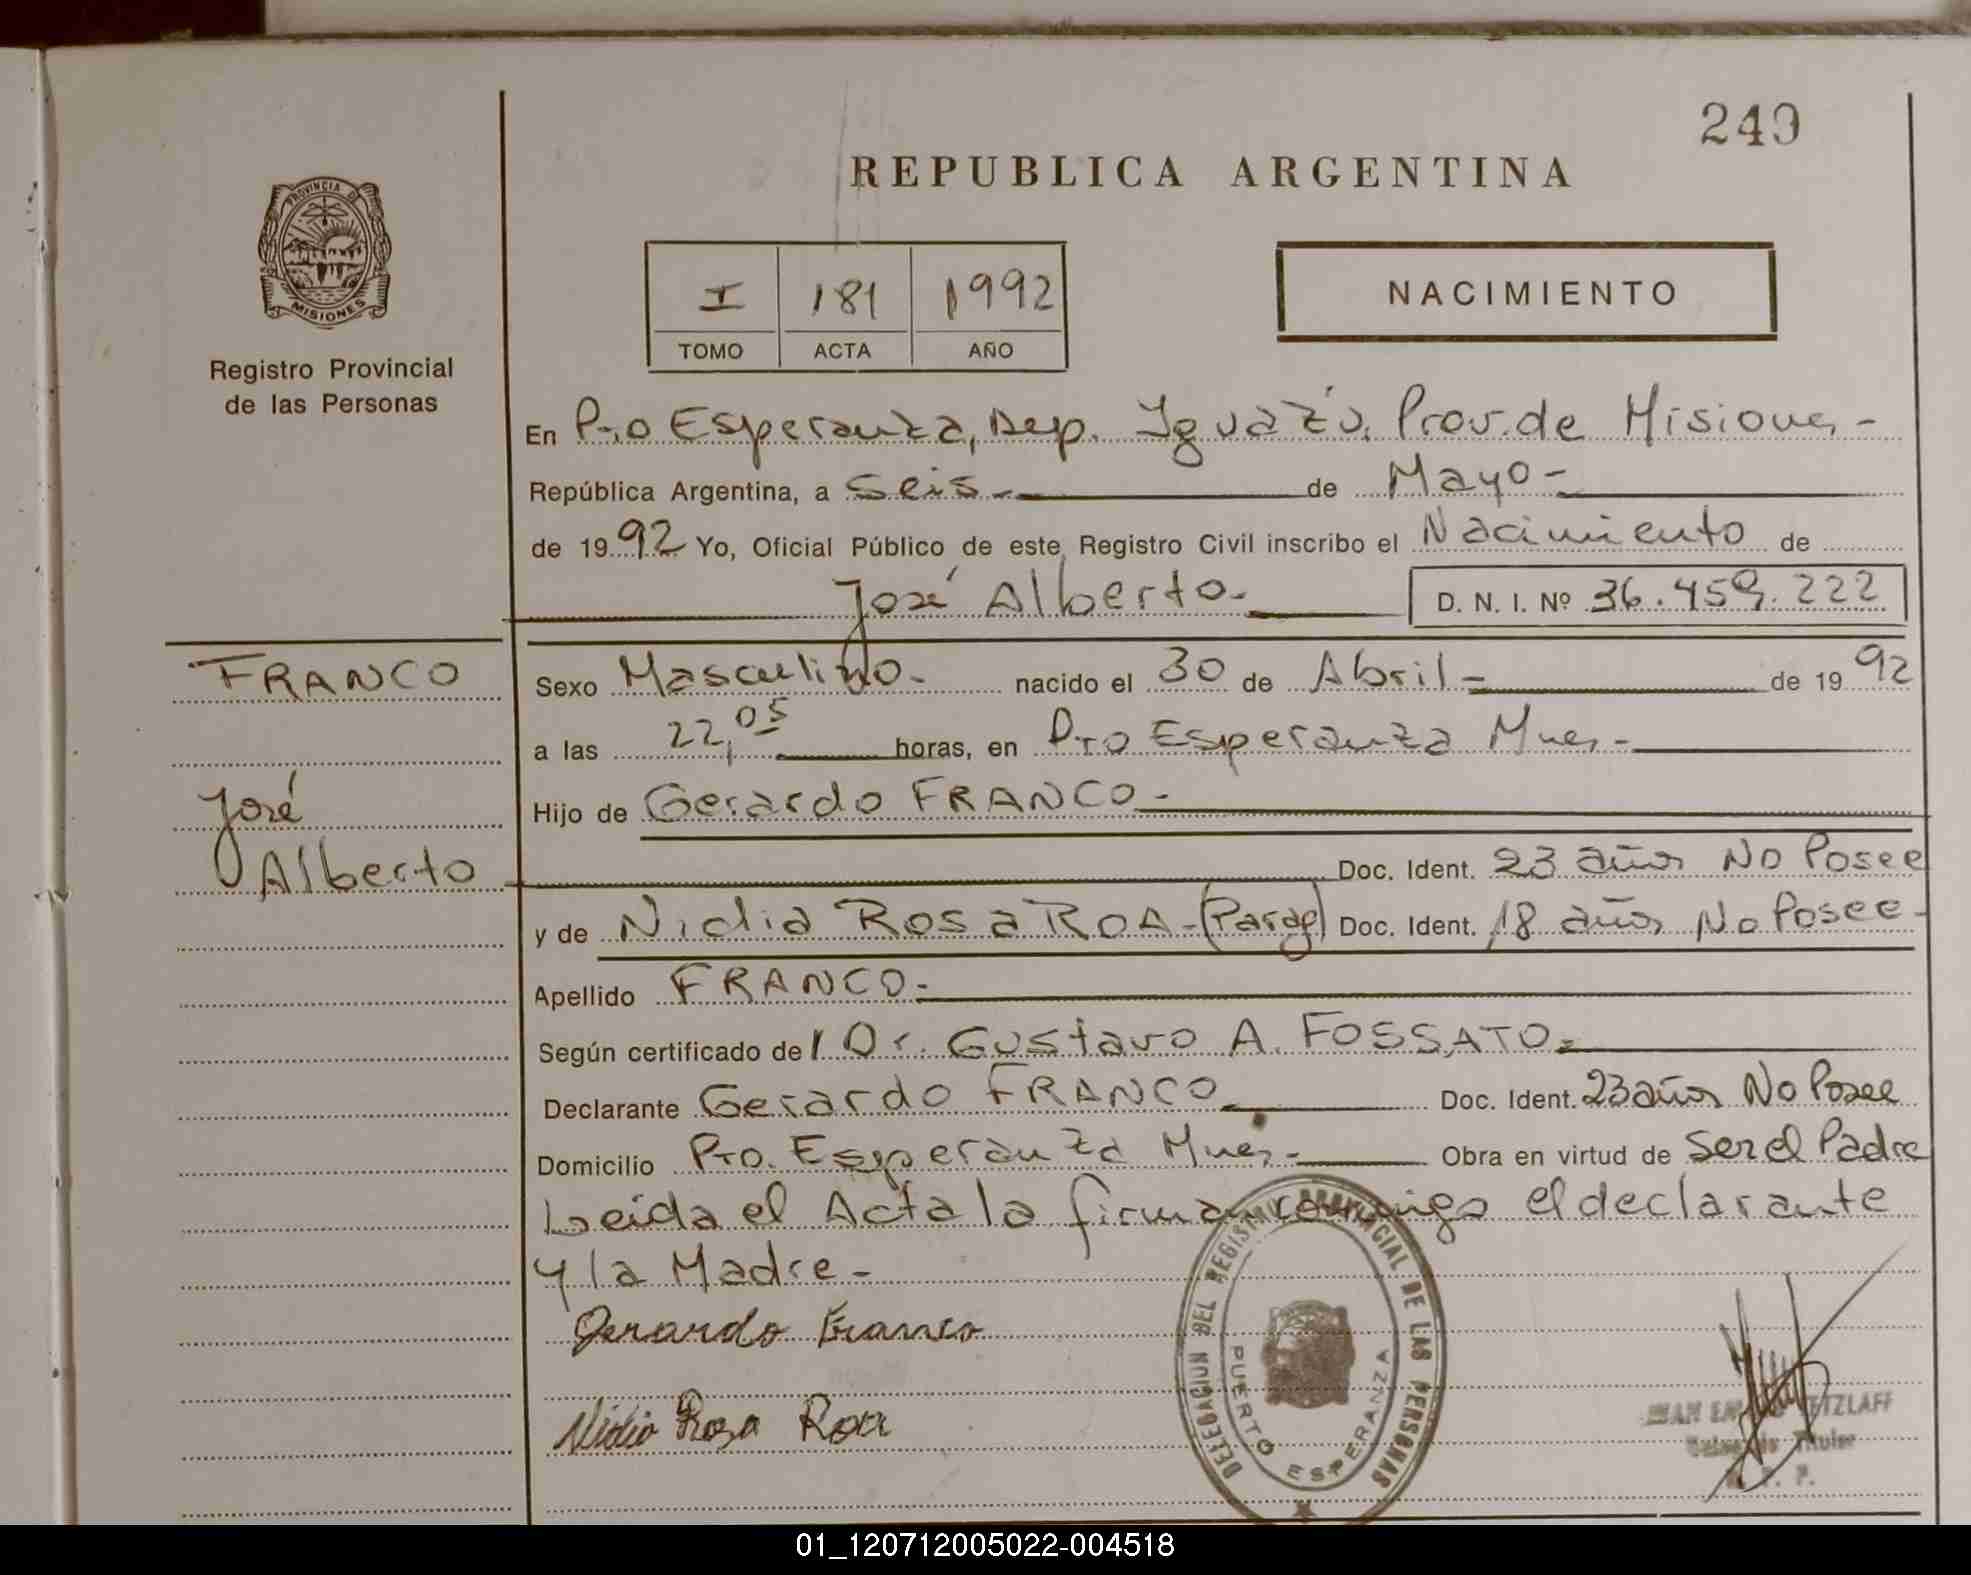 249
REPUBLICA ARGENTINA
PROVINCIA DE
MISIONES
Registro Provincial
de las Personas
I 181 1992
TOMO ACTA AÑO
NACIMIENTO
En Pto Esperanza, Dep. Iguazú. Prov. de Misiones -
República Argentina, a seis - de Mayo -
de 1992 Yo, Oficial Público de este Registro Civil inscribo el Nacimiento de
José Alberto. - D. N. I. Nº 36.459.222
FRANCO
José
Alberto
Sexo Masculino. - nacido el 30 de Abril - de 1992
a las 22,05 horas, en Pto Esperanza Mnes -
Hijo de Gerardo FRANCO -
Doc. Ident. 23 años No Posee
y de Nidia Rosa ROA - (Parag) Doc. Ident. 18 años No Posee -
Apellido FRANCO -
Según certificado del Dr. Gustavo A. FOSSATO -
Declarante Gerardo FRANCO Doc. Ident. 23 años No Posee
Domicilio Pto. Esperanza Mnes - Obra en virtud de Ser el Padre
Leida el Acta la firman conmigo el declarante
y la Madre -
Gerardo Franco
Nidia Rosa Roa
DELEGACION DEL REGISTRO PROVINCIAL DE LAS PERSONAS
PUERTO ESPERANZA
JUAN
Titular
01_120712005022-004518